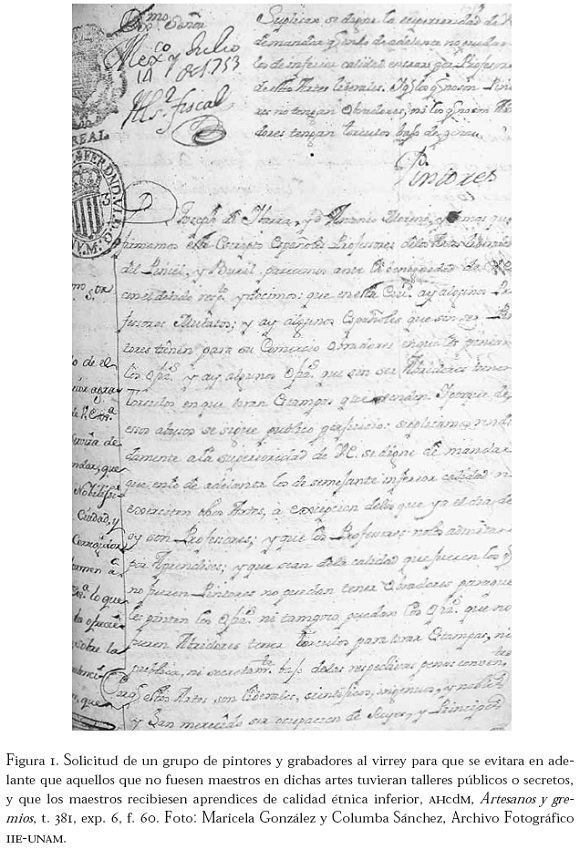 Exmo. Señor
Mexco y Julio
14 de 1753
Al Sr. fiscal
Suplican se digne la superioridad de V
demandar q en lo de adelante no puedan
los de inferior calidad entrar por Profesores
de estos Artes liberales. Y q los q no son Pintores
no tengan Obradores, ni los q no son Abridores
tengan tórculos bajo de graves
Pintores
REAL
FERDND.VI.D.G.
Joseph de Ibarra, y Dn Antonio Moreno, y demas que
firmamos este Escripto Españoles Profesores de los Artes Liberales
del Pincel, y Buril, parecemos ante la benignidad de VE
como de Derecho y decimos: que en esta Ciud. ay algunos Profesores
Mulatos; y ay algunos Españoles que sin ser Pintores
tienen para su Comercio obradores en que le pintan
los Ofis. y ay algunos Ofis. que sin ser Abridores tienen
Torculos en que tiran Estampas que venden. Y porque de
estos abusos se sigue publico perjuicio: suplicamos rendidamente
a la superioridad de VE. se digne de mandar
que en lo de adelante los de semejante inferior calidad no
exerciten estos Artes, a excepcion de los que ya el dia de
oy son Profesores; y que los Profesores no los admitan
por Aprendices; y que sean de la calidad que fueren los q
no fueren Pintores no puedan tener Obradores para que
les pinten los Ofis. ni tampoco puedan los Ofis. que no
fueren Abridores tener Torculos para tirar Estampas, ni
publica, ni secretamte. bajo de las respectivas penas
Estos Artes son liberales, scientificos, ingenuos, y nobles
y han merecido ser ocupacion de Reyes, y Principes
Nobilisi
Ciudad, y
Corregidor
lo que
sobre la
Figura 1. Solicitud de un grupo de pintores y grabadores al virrey para que se evitara en ade-
lante que aquellos que no fuesen maestros en dichas artes tuvieran talleres públicos o secretos,
y que los maestros recibiesen aprendices de calidad étnica inferior, AHCDM, Artesanos y gre-
mios, t. 381, exp. 6, f. 60. Foto: Maricela González y Columba Sánchez, Archivo Fotográfico
IIE-UNAM.